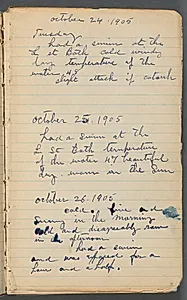 October 24 1905
Tuesday
had a swim at the
L St Bath cold windy
day temperature of the
water 48
slight attack of catarrh
October 25, 1905
had a swim at the
L St Bath temperature
of the water 47 beautiful
day warm in the Sun
October 26 1905
cold fair and
Sunny in the morning
cold and disagreeably raw
in the afternoon
I had a swim
and was exposed for a
hour and a half.